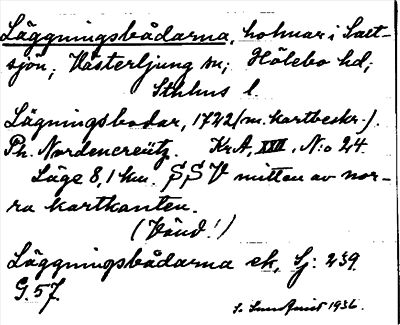 Läggningsbådarna, holmar i Salt-
sjön; Västerljung sn; Hölebo hd;
Sthlms l.
Lägningsbodar, 1722 (m. kartbeskr.).
Ph. Nordencreütz. KrA, XIII, N:o 24.
Läge 8,1 km. SSV mitten av nor-
ra kartkanten.
(Vänd!)
Läggningsbådarna ek, Sj: 239
G. 57.
S. Sundquist 1936.